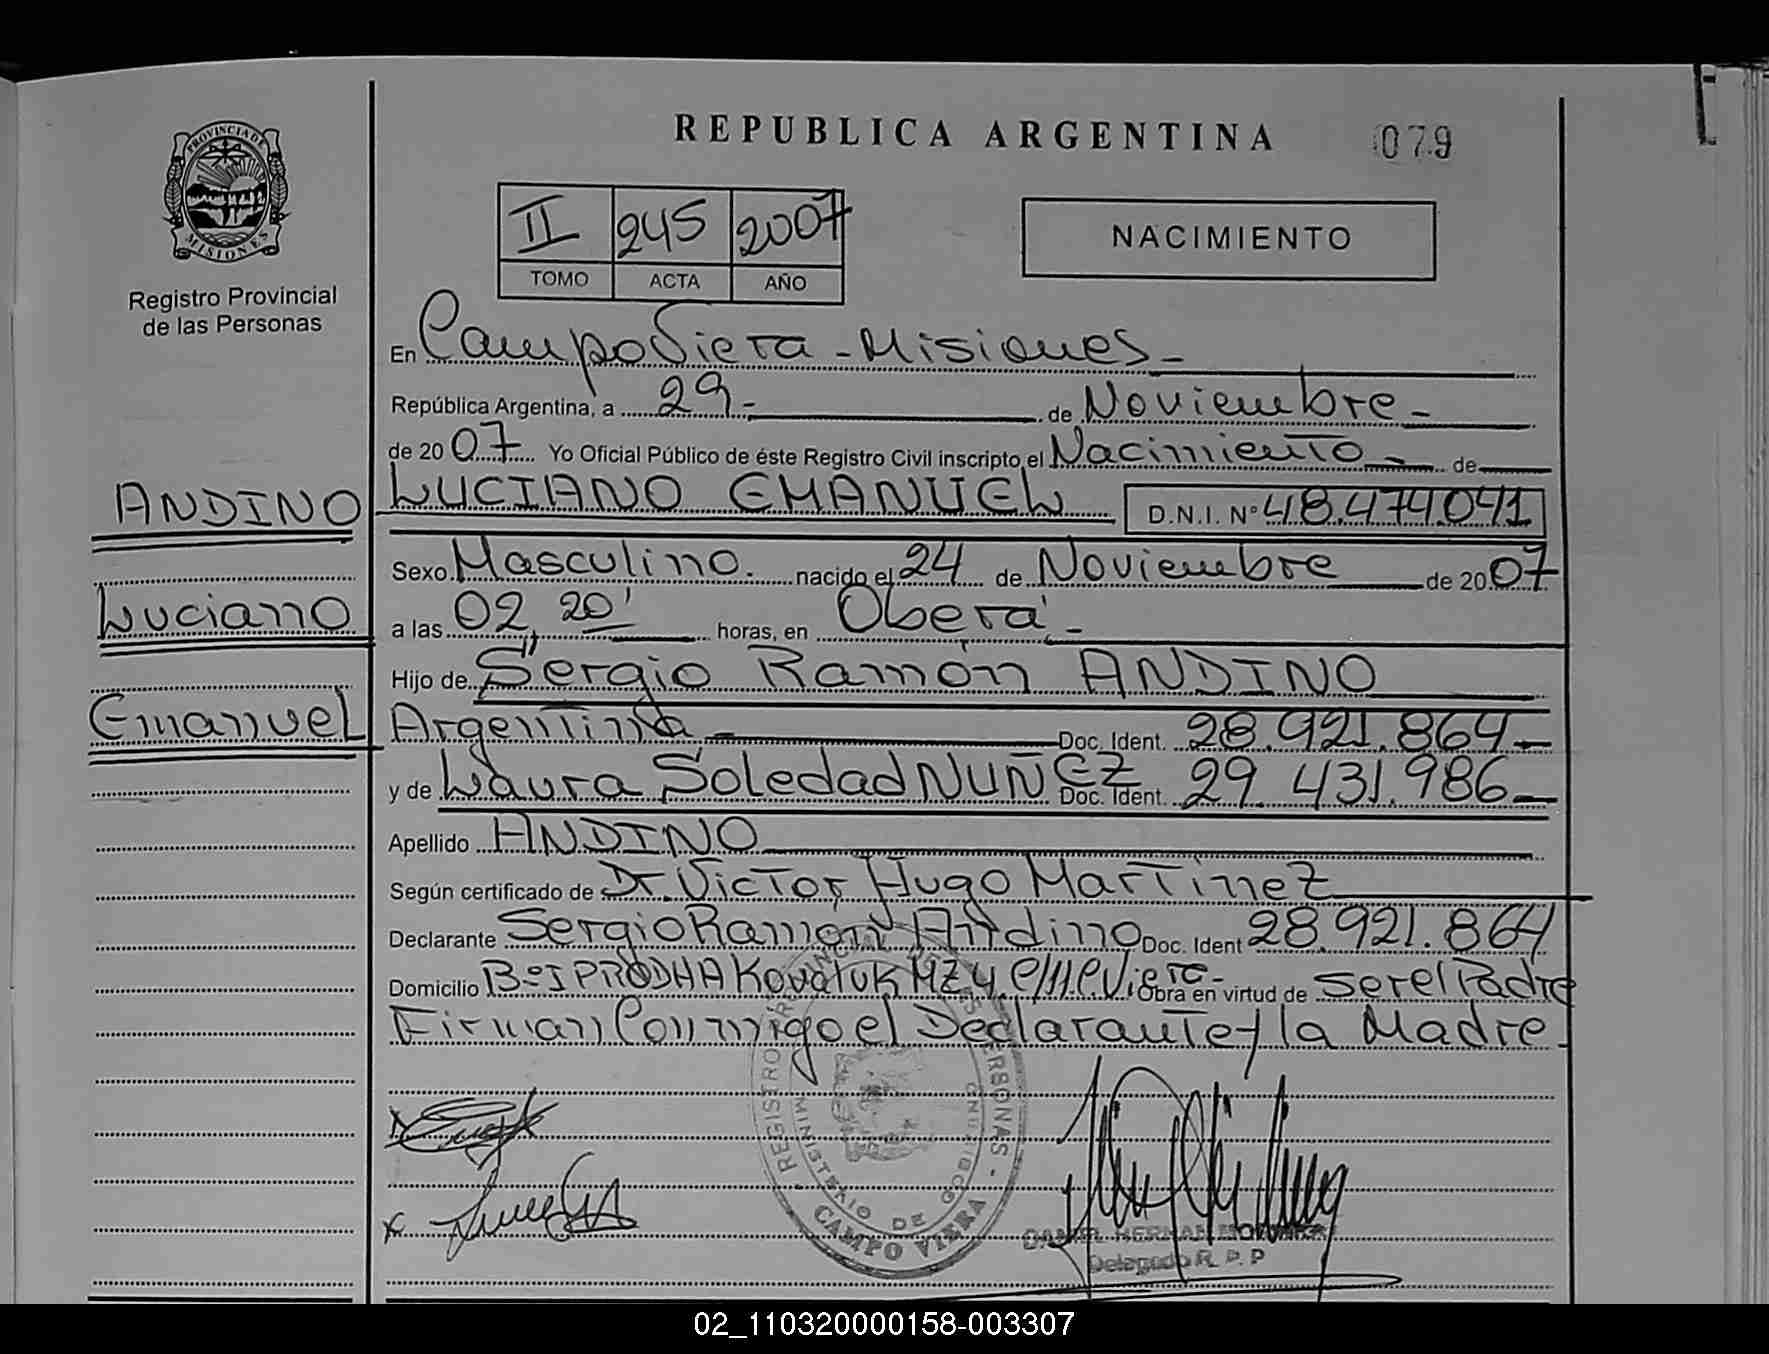 REPUBLICA ARGENTINA
079
PROVINCIA DE
MISIONES
Registro Provincial
de las Personas
II 245 2007
TOMO ACTA AÑO
NACIMIENTO
En Campo Viera - Misiones -
República Argentina, a 29 - de Noviembre -
de 20 07 Yo Oficial Público de éste Registro Civil inscripto el Nacimiento - de
ANDINO
LUCIANO EMANUEL D.N.I. Nº 48.474.041
Sexo Masculino. nacido el 24 de Noviembre de 20 07
Luciano
a las 02,, 20' horas, en Oberá -
Hijo de Sergio Ramón ANDINO
Emanuel
Argentina - Doc. Ident. 28.921.864 -
y de Laura Soledad NUÑEZ Doc. Ident. 29.431.986 -
Apellido ANDINO
Según certificado de Dr. Victor Hugo Martinez
Declarante Sergio Ramón Andino Doc. Ident 28.921.864
Domicilio Bº IPRODHA MZ 4 Obra en virtud de ser el Padre
Firman Conmigo el Declarante y la Madre
REGISTRO PROVINCIAL DE LAS PERSONAS
MINISTERIO DE
CAMPO VIERA
Delegado R. P. P
02_110320000158-003307